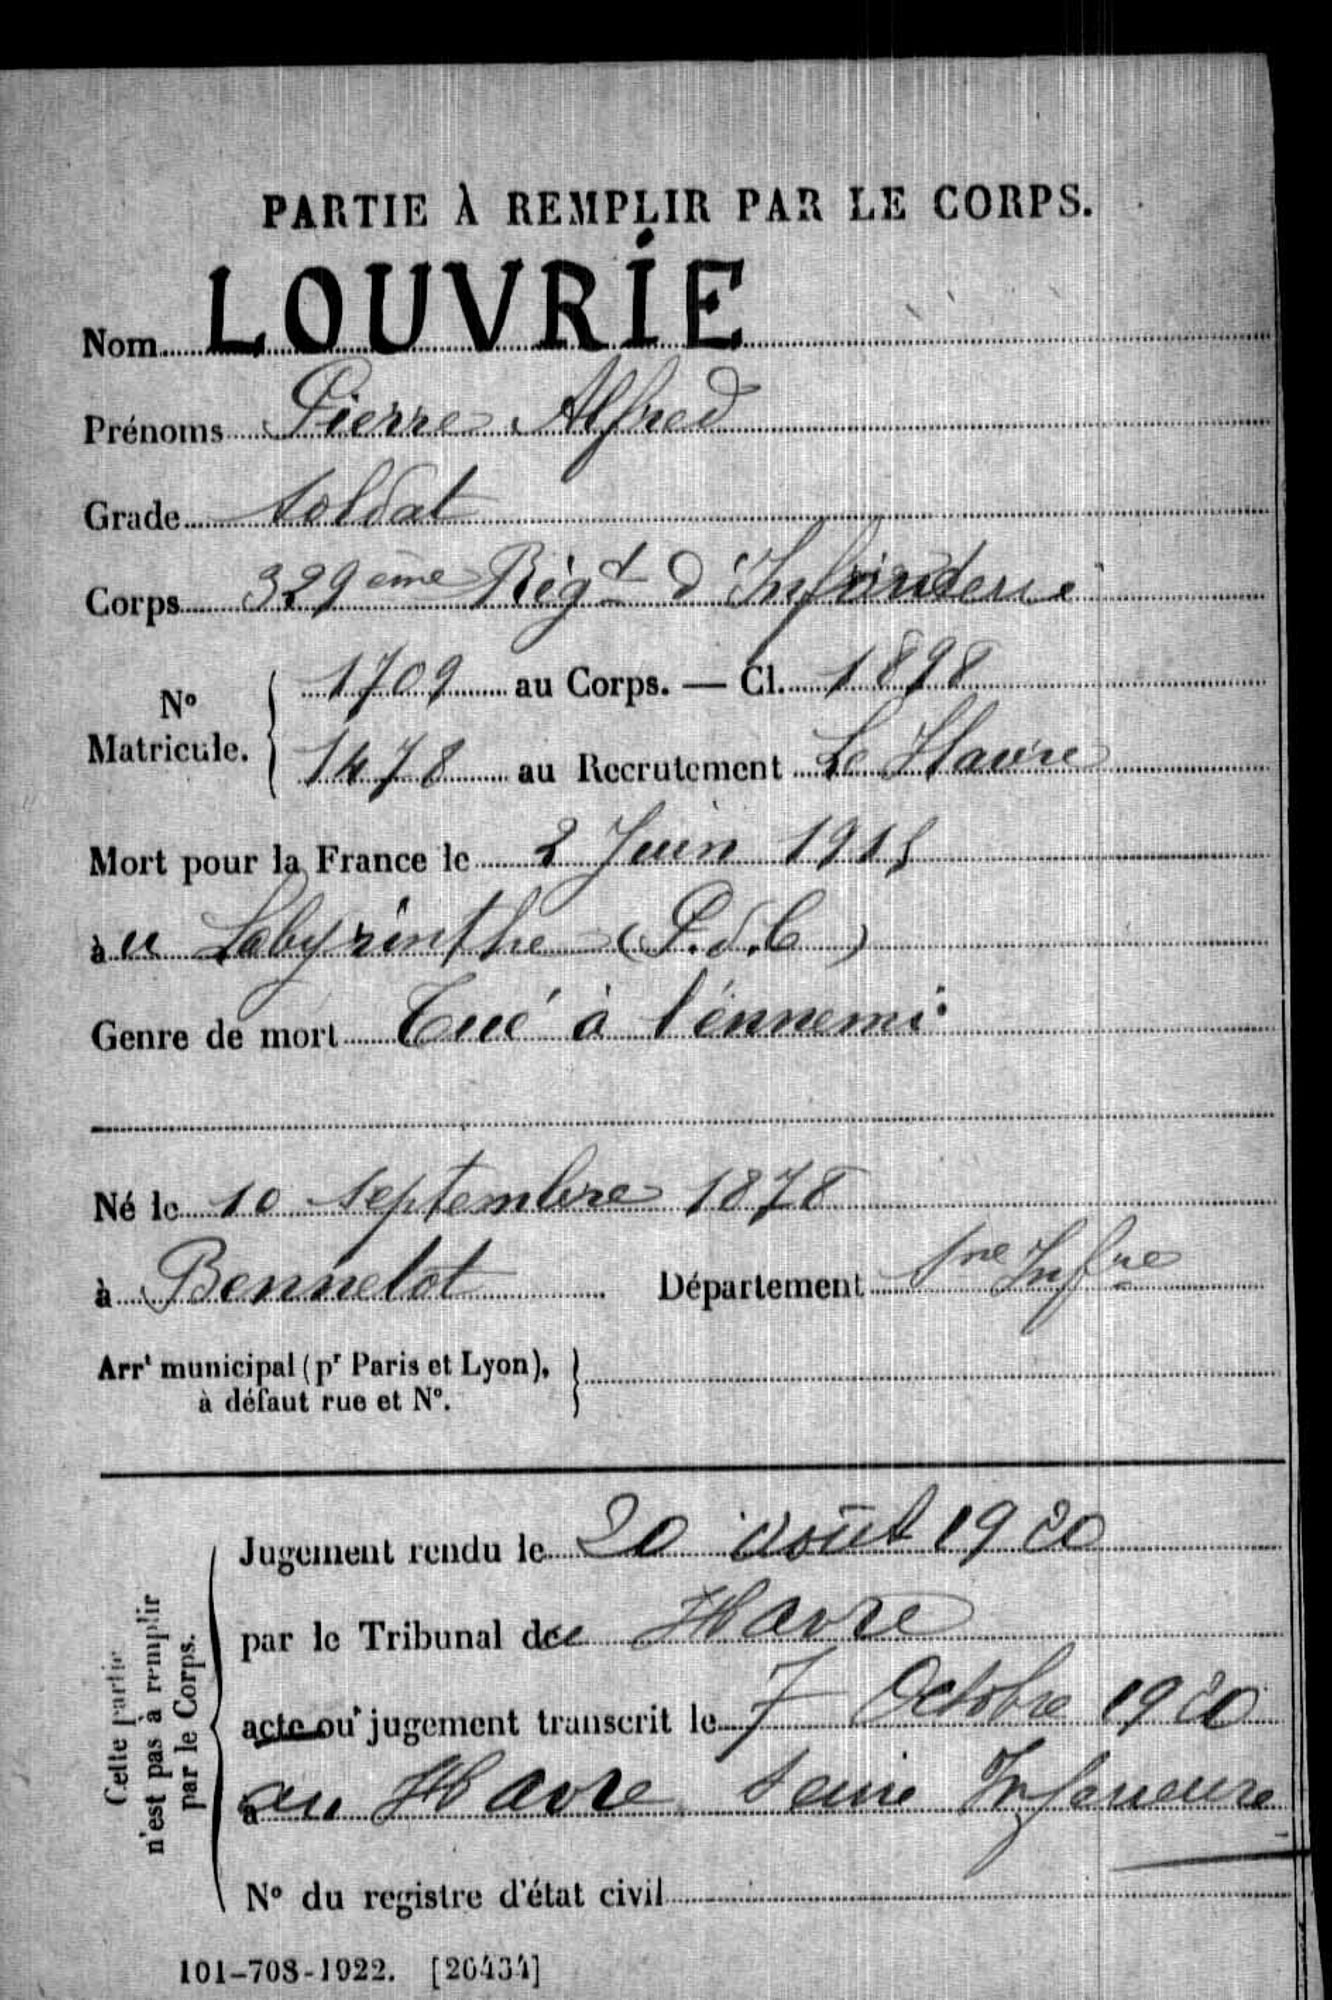 PARTIE À REMPLIR PAR LE CORPS.
Nom LOUVRIE
Prénoms Pierre Alfred
Grade Soldat
Corps 329ème Régt d'Infanterie
No Matricule. { 1709 au Corps. — Cl. 1898
1478 au Recrutement Le Havre
Mort pour la France le 2 Juin 1915
àu Labyrinthe (P.d.C)
Genre de mort Tué à l'énnemi
Né le 10 Septembre 1878
à Bennetot Département Sne Infre
Arrt municipal (pr Paris et Lyon), à défaut rue et No. }
Cette partie n'est pas à remplir par le Corps.
Jugement rendu le 20 août 1920
par le Tribunal du Havre
acte ou jugement transcrit le 7 Octobre 1920
au Havre Seine Inférieure
No du registre d'état civil
101-708-1922. [26434]